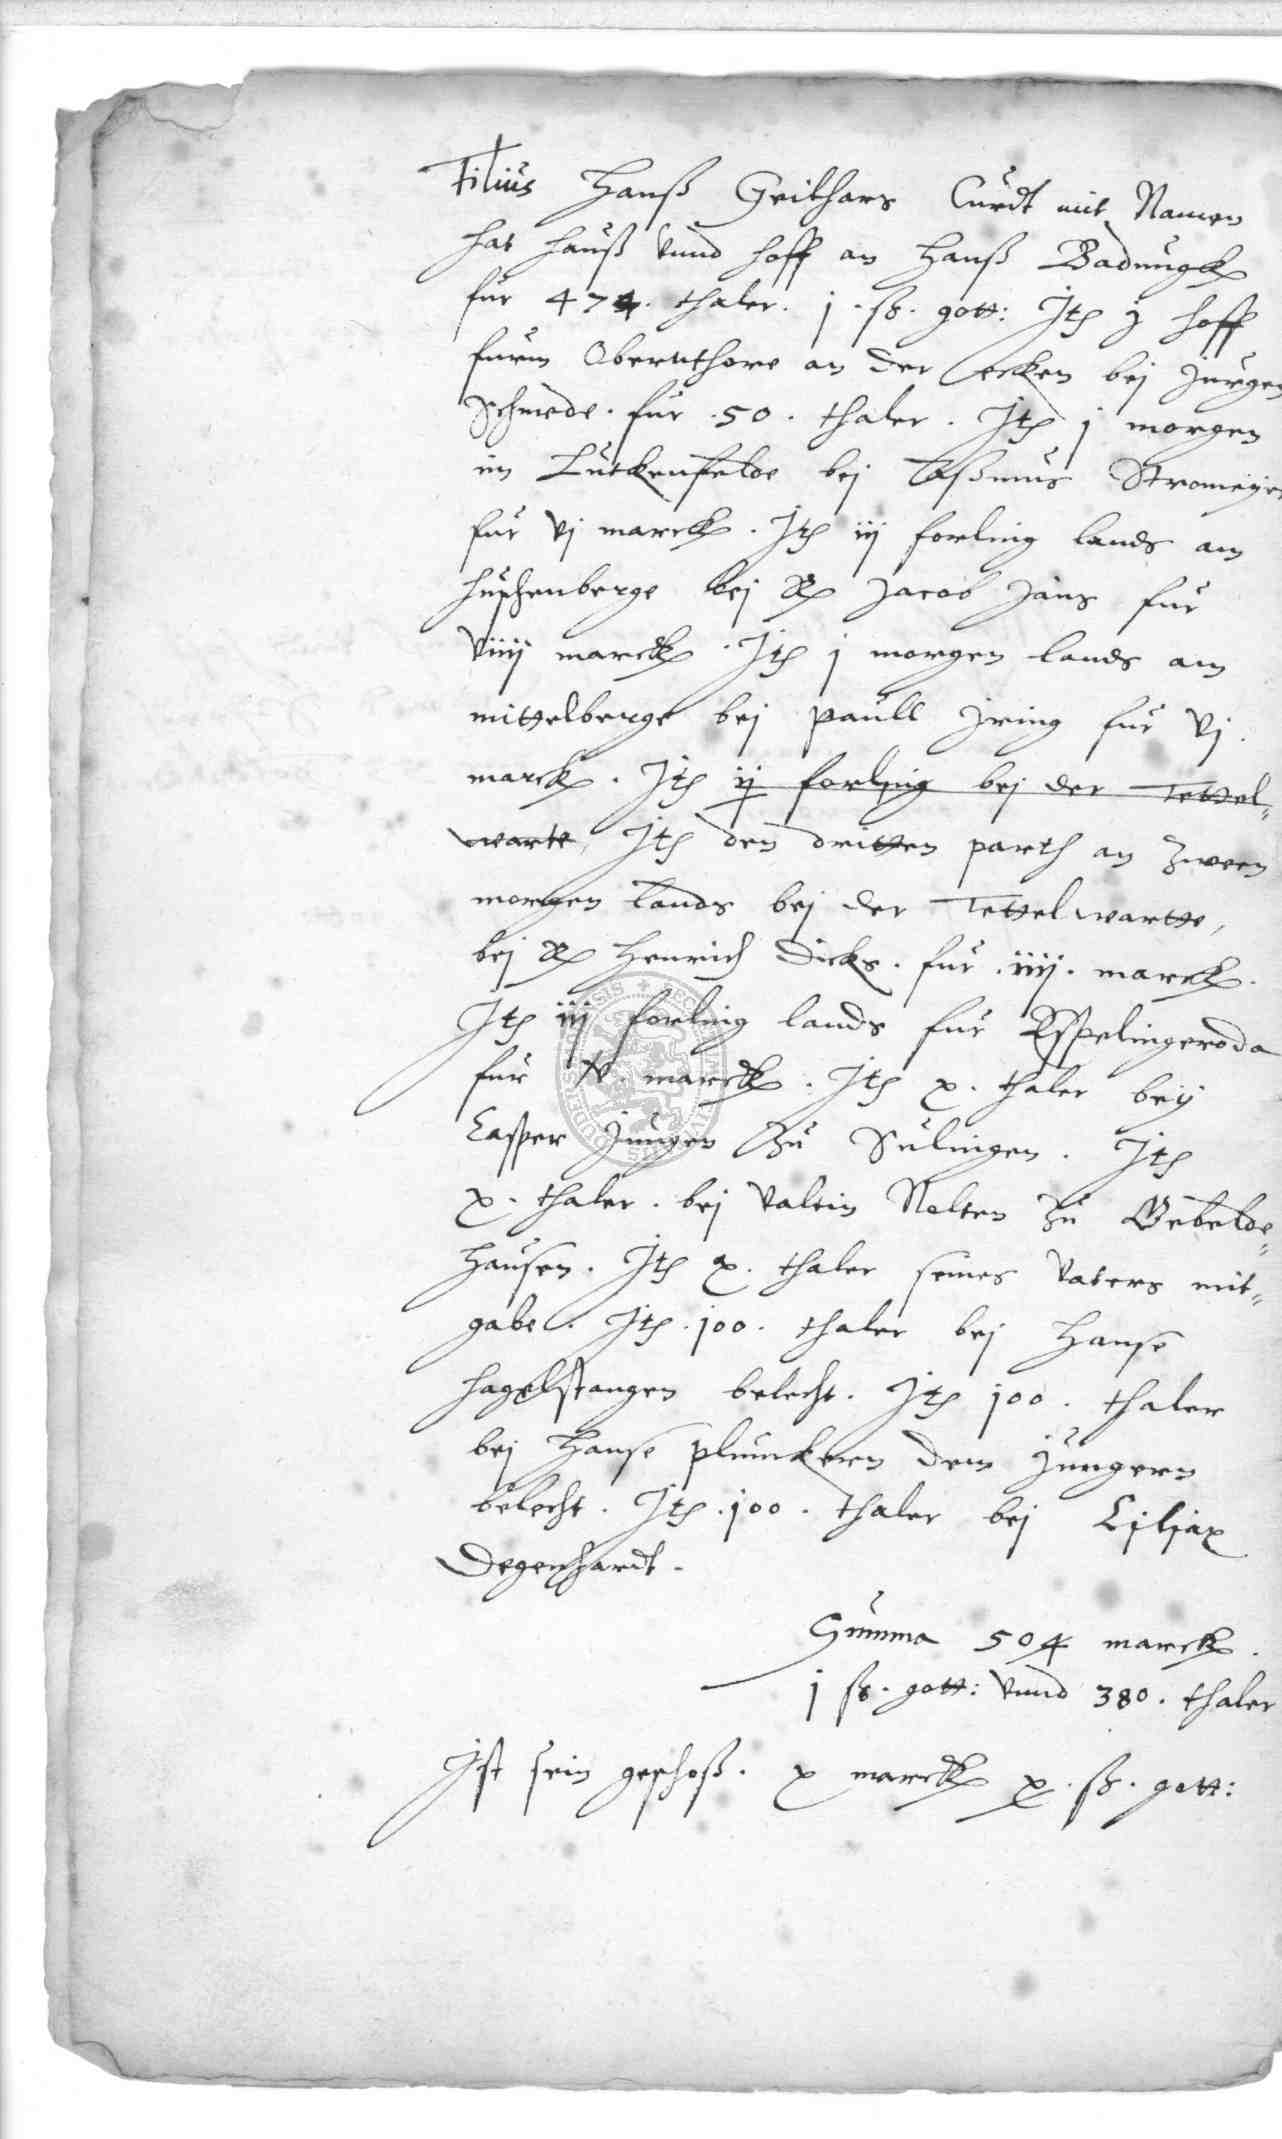 Filius Hanß Geilhars Curdt mit Namen
hat hauß vnnd hoff an Hanß Badungk
für 474. thaler. j. ß. gott: Itz j hoff
furm Obernthore an der ecken bej Jürgen
Schmede. für .50. thaler. Itz j morgen
im Lütkenfelde bej Caßmus Stromeyer
für vj marck. Itz iij forling lands am
huschenberge bej Jacob Jans für
viiij marck. Itz j morgen lands am
mittelberge bej paull Jring für vj.
marck. Itz ij forling bej der Tettel„
warte, Itz den dritten parth an zween
morgen lands bej der Tettelwartte,
bej Henrich Dicks. für .iiij. marck.
Itz iij forling lands für Esspelingeroda
für v. marck. Itz x. thaler beij
Casper Jungen zü Sülingen. Itz
x. thaler. bej Valtin Nolten zü Gebelde„
hausen. Itz x. thaler seines vaters mit„
gabe. Itz .100. thaler bej Hanse
hagelstangen belecht. Itz 100. thaler
bej Hanse plünckern dem jüngern
belecht. Itz .100. thaler bej Ciliax
Degenhardt.
Summa 504 marck.
j ß. gott: vnnd 380. thaler
Ist sein geschoß. x marck x. ß. gott: